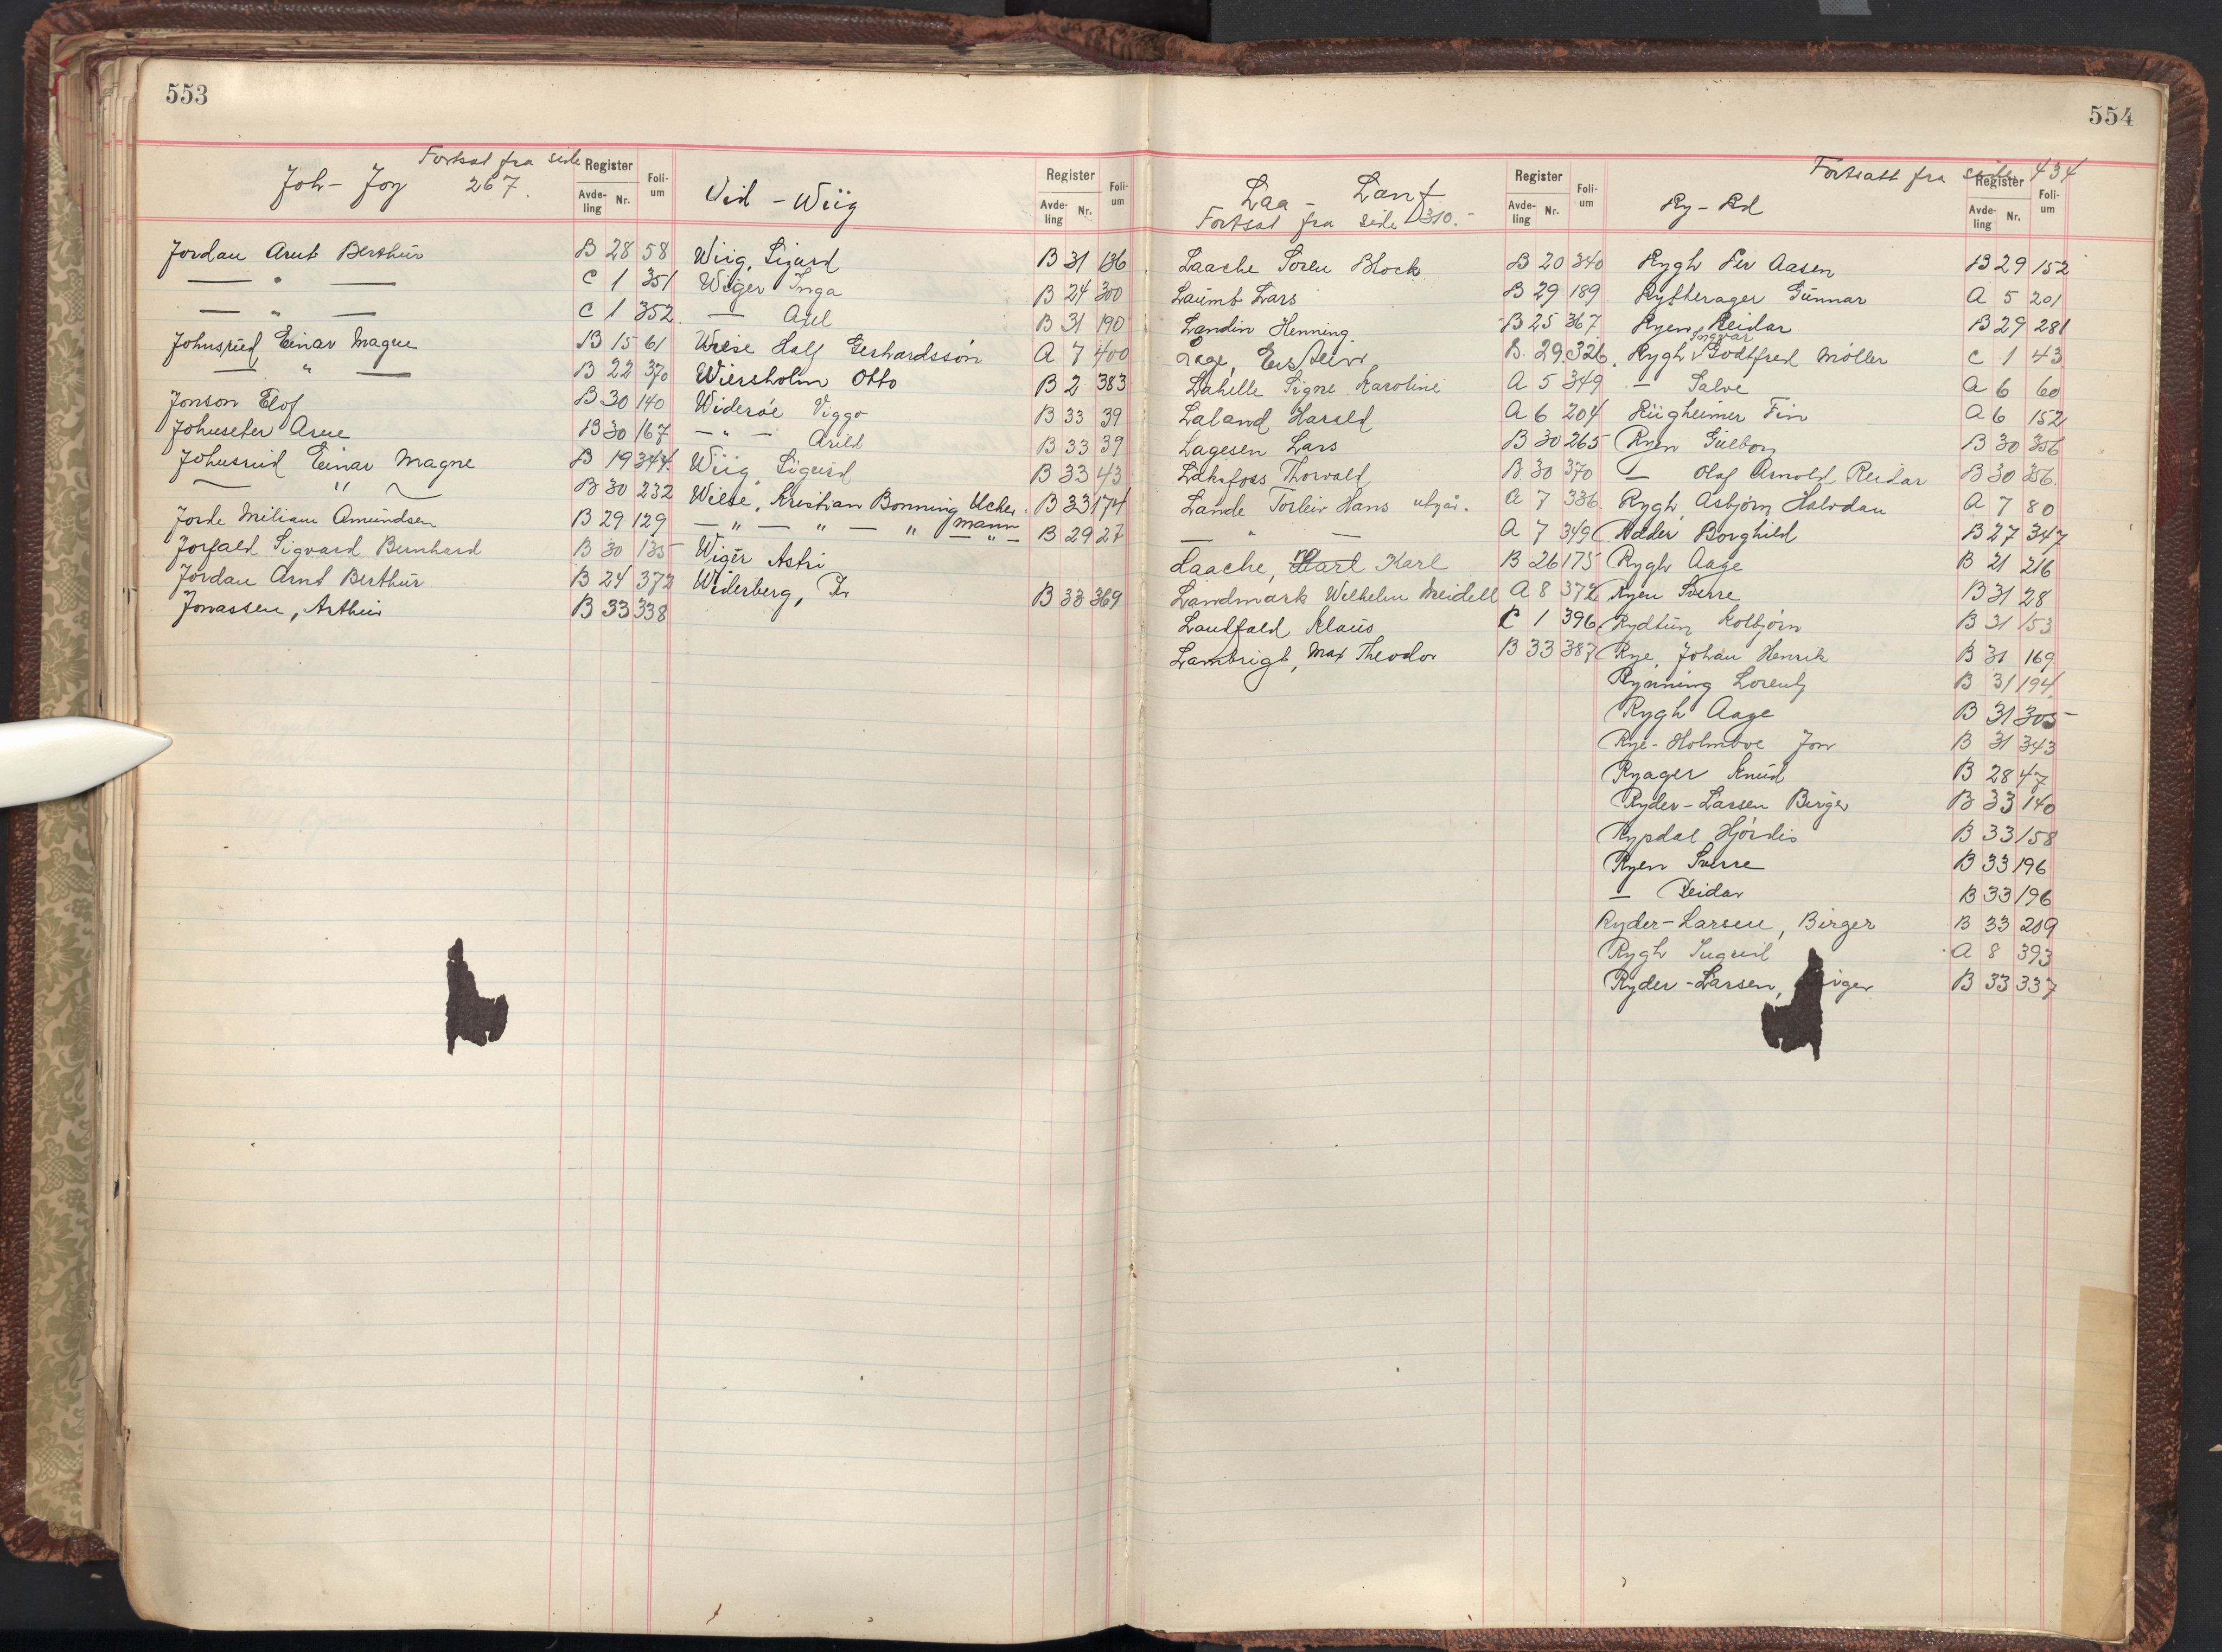 553
Fortsat fra side
Joh - Joy 267.
Register
Avde-ling Nr. Foli-um
Jordan Arnt Berthur B 28 58
— " — C 1 351
— " — C 1 352
Johnsrud Einar Magne B 15 61
— " — B 22 370
Jonson Elof B 30 140
Johnseter Arne B 30 167
Johnsrud Einar Magne B 19 344
— " — B 30 232
Jorde Miliam Amundsen B 29 129
Jorfald Sigvard Bernhard B 30 135
Jordan Arnt Berthur B 24 372
Jonassen, Arthur B 33 338
Wid - Wiig
Register
Avde-ling Nr. Foli-um
Wiig, Sigurd B 31 136
Wiger Inga B 24 300
— Axel B 31 190
Wiese Half Gerhardssøn A 7 400
Wiersholm Otto B 2 383
Widerøe Viggo B 33 39
— " — Arild B 33 39
Wiig Sigurd B 33 43
Wiese, Kristian Bonning Ucker- B 33 174
— " — " — " mann — " — B 29 27
Wiger Astri
Widerberg, Per B 33 369
554
Laa - Lanf
Fortsat fra side 310.-
Register
Avde-ling Nr. Foli-um
Laache Søren Block B 20 340
Laumb Lars B 29 189
Landin Henning B 25 367
Lage, Eistein B. 29 326
Lahelle Signe Karoline A 5 349
Laland Harald A 6 204
Lagesen Lars B 30 265
Laksfoss Thorvald B 30 370
Lande Torleiv Hans utgår. A 7 336
— " — A 7 349
Laache, Karl B 26 175
Landmark Wilhelm Meidell A 8 372
Landfald Klaus C 1 396
Lambrigt, Max Theodor B 33 387
Fortsatt fra side 434
Ry - Rd
Register
Avde-ling Nr. Foli-um
Rygh Per Aasen B 29 152
Rytterager Gunnar A 5 201
Ryen Reidar B 29 281
Ingvar
Rygh Godtfred Møller C 1 43
— Salve A 6 60
Rüigheimer Fin A 6 152
Ryen Gulborg B 30 356
— Olaf Arnold Reidar B 30 356.
Rygh Asbjørn Halvdan A 7 80
Rødder Borghild B 27 347
Rygh Aage B 21 216
Ryen Sverre B 31 28
Rydtun Kolbjørn B 31 153
Rye, Johan Henrik B 31 169
Rynning Lorentz B 31 194
Rygh Aage B 31 305
Rye-Holmboe Jon B 31 343
Ryager Knud B 28 47
Ryder-Larsen Birger B 33 140
Rypdal Hjørdis B 33 158
Ryen Sverre B 33 196
— Reidar B 33 196
Ryder-Larsen, Birger B 33 209
Rygh Sugrid A 8 393
Ryder-Larsen, B 33 337